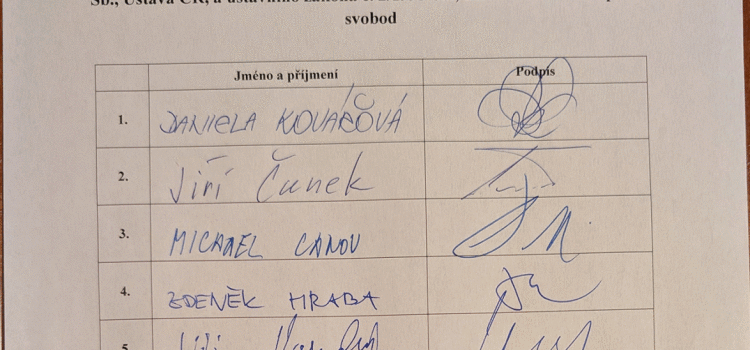 Sb., Ústava ČR, a ústavního zákona
svobod
Jméno a příjmení Podpis
1. DANIELA KOVÁŘOVÁ
2. Jiří Čunek
3. MICHAEL CANOV
4. ZDENĚK HRABA
5. Jiří